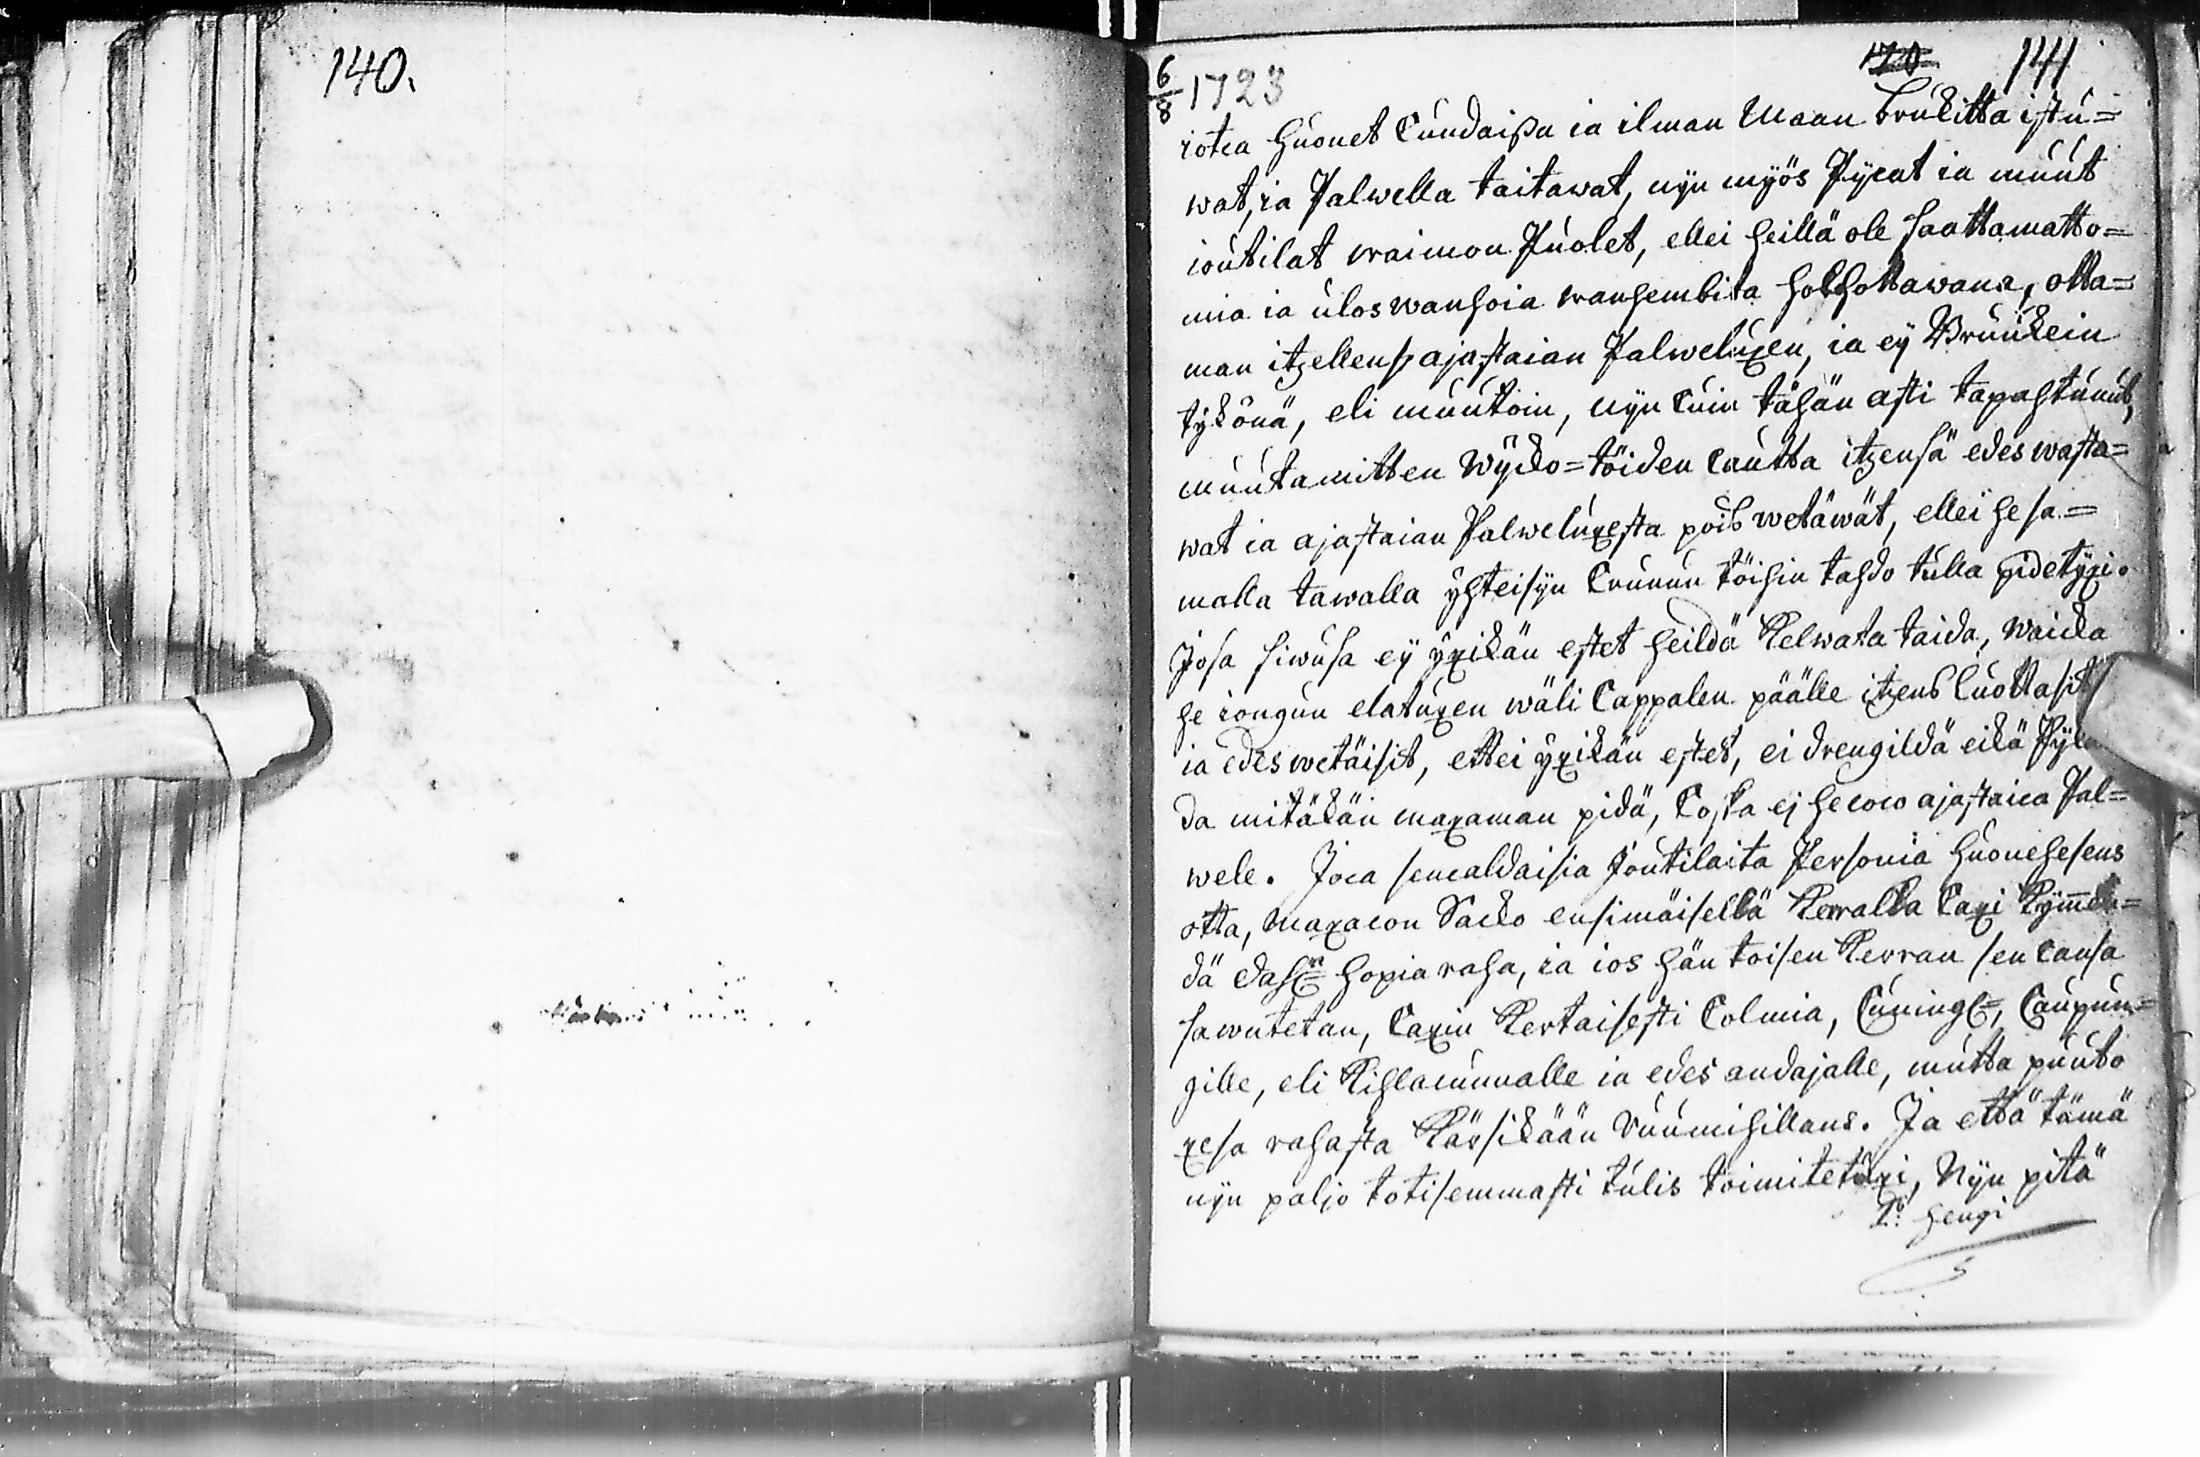 140.
6/8 1723
170 141
iotca Huonet Cundaißa ia ilman Maan brukitta istu=
wat, ia Palwella taitawat, nyn myös Pycat ia muut
ioutilat waimon Puolet, ellei heillä ole saattamatto=
mia ia ulos wanhoia wanhembita holhottawana, otta=
man itzellens ajastaian Palweluxen, ia ey Bruukein
tykönä, eli muutoin, nyn cuin tähän asti tapahtunut,
muutamitten Wijcko=töiden cautta itzensä edes wasta=
wat ia ajastaian Palweluxesta pois wetäwät, ellei he sa=
malla tawalla yhteisyn Crunun töihin tahdo tulla pidetyxi.
Josa siwusa ey yxikän estet heildä Kelwata taida, waicka
he iongun elatuxen wäli Cappalen päälle itzens luottasit
ia edes wetäisit, ettei yxikän estet, ei drengildä eikä
da mitäkän maxaman pidä, Coska ej he coco ajastaica Pal=
wele. Joca sencaldaisia Joutilaita Personia huonehesens
otta, maxacon Sacko ensimäisellä Kerralla Caxi Kymmen=
dä dahl:r hopia raha, ia ios hän toisen Kerran sen cansa
sawutetan, Caxin Kertaisesti Colmia, Cuning:, Caupun=
gille, eli Kihlacunnalle ia edes andajalle, mutta puuto
xesa rahasta Kärsikään ruumihillans. Ja että tämä
nyn paljo totisemmasti tulis toimitetuxi, Nyn pitä
1:o Hengi